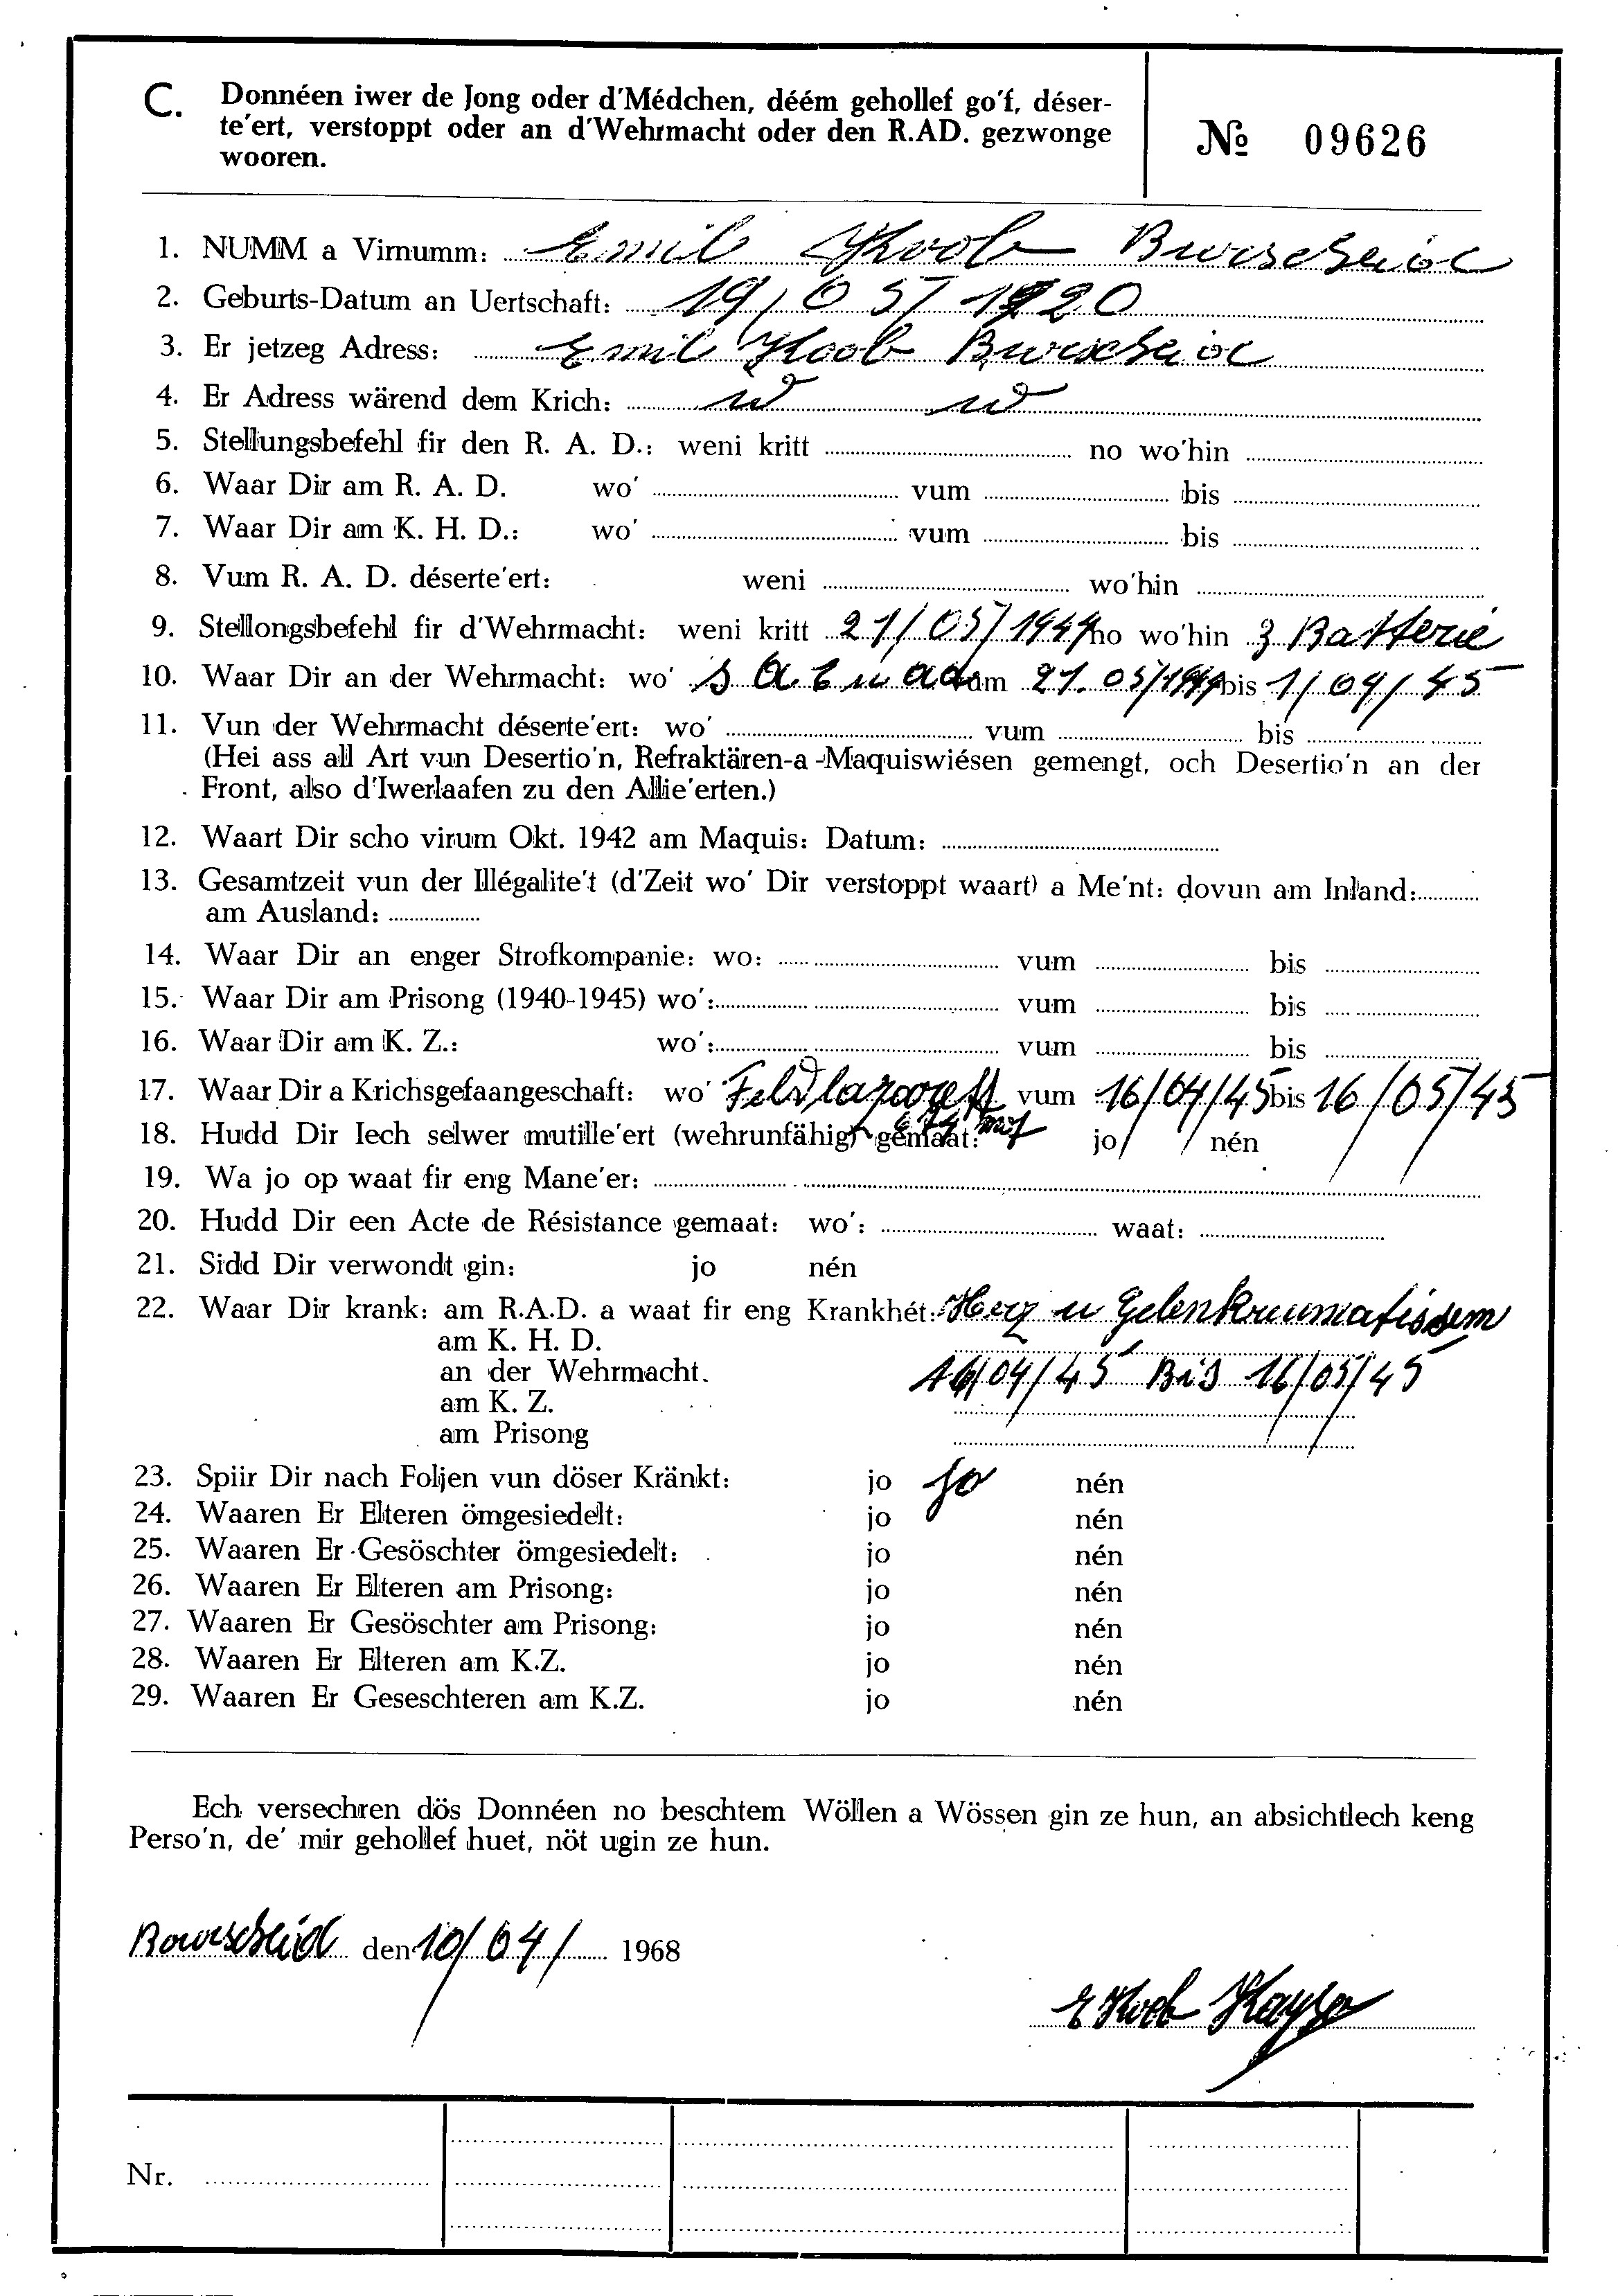 C. Donnéen iwer de Jong oder d'Médchen, déém gehollef go'f, déser-
te'ert, verstoppt oder an d'Wehrmacht oder den R.AD. gezwonge
wooren.
№ 09626
1. NUMM a Virnumm: Emil Koob Burscheid
2. Geburts-Datum an Uertschaft: 19/05/1920
3. Er jetzeg Adress: Emil Koob Burscheid
4. Er Adress wärend dem Krich:
5. Stellungsbefehl fir den R. A. D.: weni kritt no wo'hin
6. Waar Dir am R. A. D. wo' vum bis
7. Waar Dir am K. H. D.: wo' vum bis
8. Vum R. A. D. déserte'ert: weni wo'hin
9. Stellongsbefehl fir d'Wehrmacht: weni kritt 21/05/1944 no wo'hin 3 Batterie
10. Waar Dir an der Wehrmacht: wo' vum 21.05/1944 bis 1/04/45
11. Vun der Wehrmacht déserte'ert: wo' vum bis
(Hei ass all Art vun Desertio'n, Refraktären-a-Maquiswiésen gemengt, och Desertio'n an der
Front, also d'Iwerlaafen zu den Allie'erten.)
12. Waart Dir scho virum Okt. 1942 am Maquis: Datum:
13. Gesamtzeit vun der Illégalite't (d'Zeit wo' Dir verstoppt waart) a Me'nt: dovun am Inland:
am Ausland:
14. Waar Dir an enger Strofkompanie: wo: vum bis
15. Waar Dir am Prisong (1940-1945) wo': vum bis
16. Waar Dir am K. Z.: wo': vum bis
17. Waar Dir a Krichsgefaangeschaft: wo' Feldlazarett vum 16/04/45 bis 16/05/45
18. Hudd Dir Iech selwer mutille'ert (wehrunfähig) gemaat: jo nén
19. Wa jo op waat fir eng Mane'er:
20. Hudd Dir een Acte de Résistance gemaat: wo': waat:
21. Sidd Dir verwondt gin: jo nén
22. Waar Dir krank: am R.A.D. a waat fir eng Krankhét: Herz u Gelenkreumatissem
am K. H. D.
an der Wehrmacht. 16/04/45 Bis 16/05/45
am K. Z.
am Prisong
23. Spiir Dir nach Foljen vun döser Kränkt: jo jo nén
24. Waaren Er Elteren ömgesiedelt: jo nén
25. Waaren Er Gesöschter ömgesiedelt: jo nén
26. Waaren Er Elteren am Prisong: jo nén
27. Waaren Er Gesöschter am Prisong: jo nén
28. Waaren Er Elteren am K.Z. jo nén
29. Waaren Er Geseschteren am K.Z. jo nén
Ech versechren dös Donnéen no beschtem Wöllen a Wössen gin ze hun, an absichtlech keng
Perso'n, de' mir gehollef huet, nöt ugin ze hun.
Bourscheid den 10/04/ 1968
E Koob Kayser
Nr.